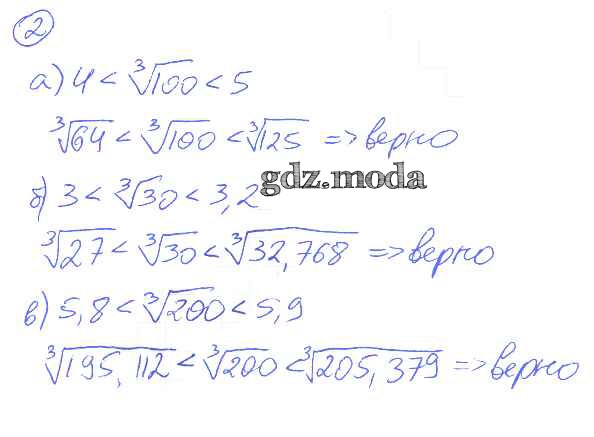 2
а) 4 < ∛100 < 5
∛64 < ∛100 < ∛125 => верно
gdz.moda
б) 3 < ∛30 < 3,2
∛27 < ∛30 < ∛32,768 => верно
в) 5,8 < ∛200 < 5,9
∛195,112 < ∛200 < ∛205,379 => верно